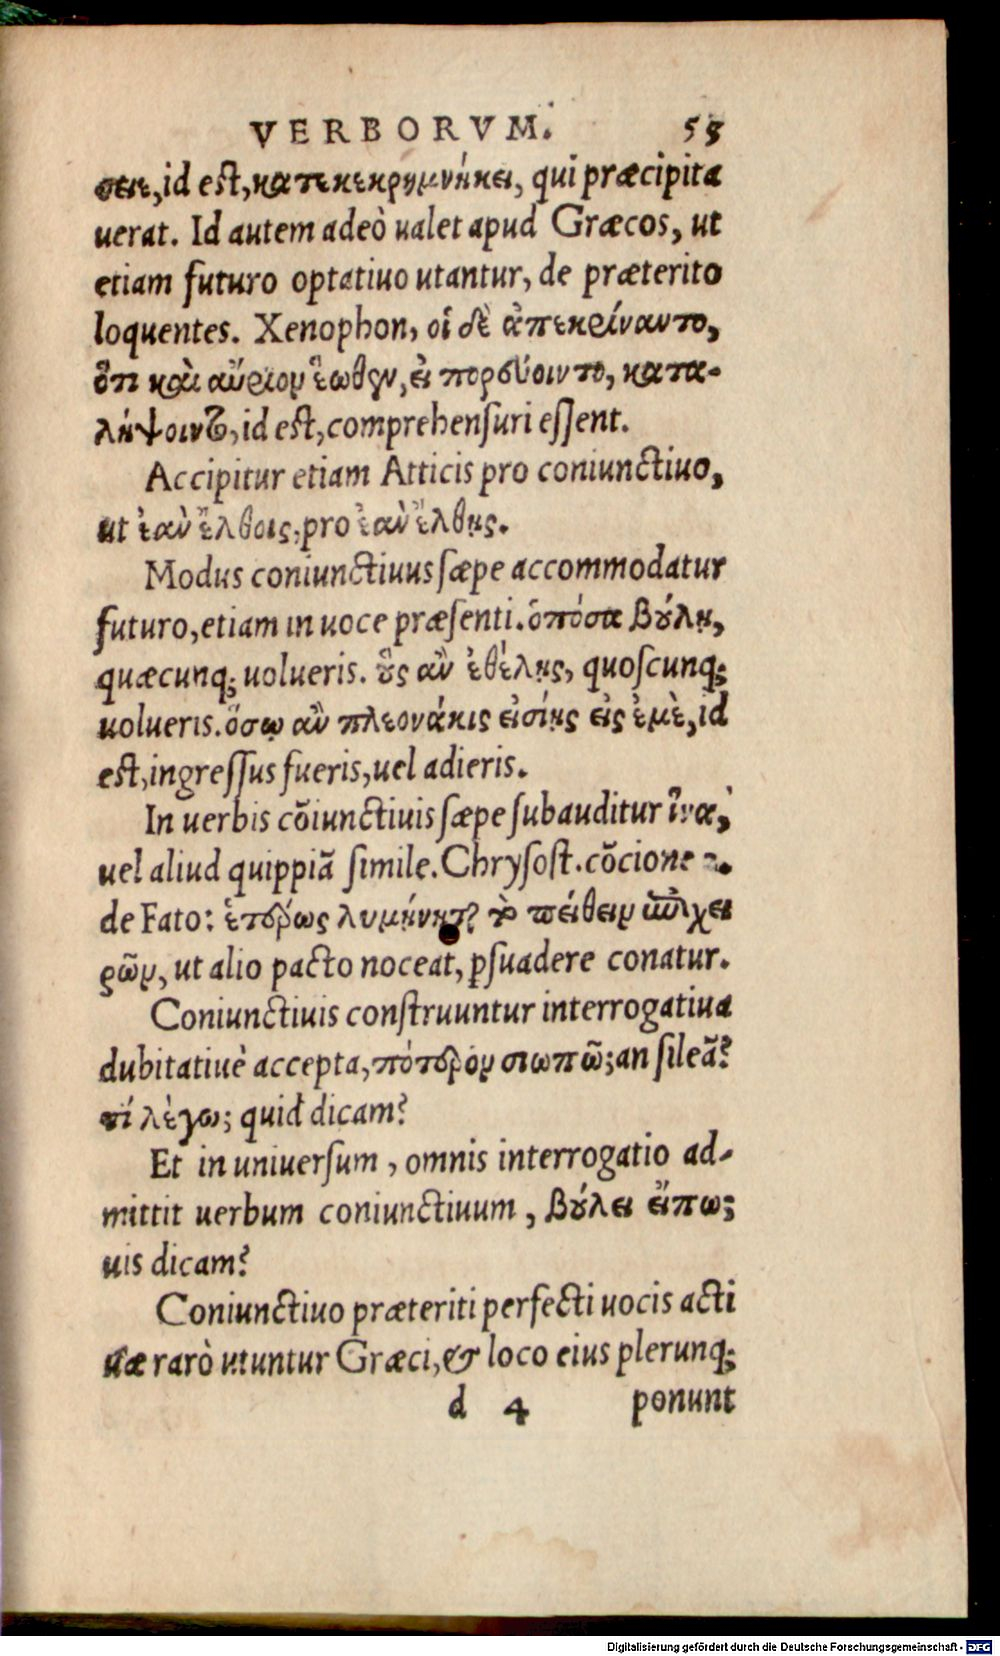 VERBORVM. 55
σειε, id est, κατεκεκρημνήκει, qui præcipita
uerat. Id autem adeò ualet apud Græcos, ut
etiam futuro optatiuo utantur, de præterito
loquentes. Xenophon, οἱ δὲ ἀπεκρίναντο,
ὅτι καὶ αὔριον ἕωθεν, εἰ πορεύοιντο, κατα-
λήψοιντο, id est, comprehensuri essent.
Accipitur etiam Atticis pro coniunctiuo,
ut ἐὰν ἔλθοις, pro ἐὰν ἔλθῃς.
Modus coniunctiuus sæpe accommodatur
futuro, etiam in uoce præsenti. ὁπόσα βύλῃ,
quæcunq; uolueris. οὓς ἂν ἐθέλῃς, quoscunq;
uolueris. ὅσῳ ἂν πλεονάκις εἰσίῃς εἰς ἐμὲ, id
est, ingressus fueris, uel adieris.
In uerbis cōiunctiuis sæpe subauditur ἵνα,
uel aliud quippiā simile. Chrysost. cōcione 2.
de Fato: ἑτέρως λυμήνηται πείθειν ἐπιχει
ρῶν, ut alio pacto noceat, psuadere conatur.
Coniunctiuis construuntur interrogatiua
dubitatiuè accepta, πότερον σιωπῶ; an sileā?
τί λέγω; quid dicam?
Et in uniuersum, omnis interrogatio ad-
mittit uerbum coniunctiuum, βούλει εἴπω;
uis dicam?
Coniunctiuo præteriti perfecti uocis acti
uæ rarò utuntur Græci, & loco eius plerunq;
d 4 ponunt
Digitalisierung gefördert durch die Deutsche Forschungsgemeinschaft - DFG